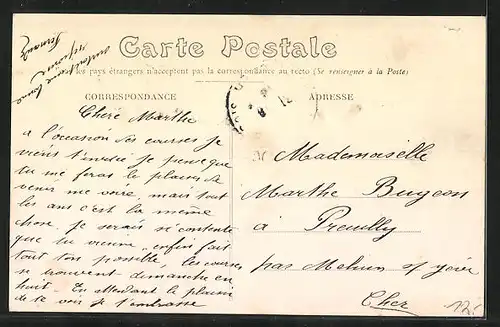 Carte Postale
les pays étrangers n'acceptent pas la correspondance au recto (Se renseigner à la Poste)
CORRESPONDANCE
ADRESSE
Cheré Marthe
a l'occasion des courses je
viens t'invité je pense que
tu me feras le plaisir de
venir me voire, mais tout
les ans c'est la même
chose, je serais si contente
que tu vienne, enfin fait
tout ton possible, les courses
se trouvent dimanche en
huit. En attendant le plaisir
de te voir je t'embrasse
M Mademoiselle
Marthe Bugeon
à Preuilly
par Mehun s/ Yèvre
Cher